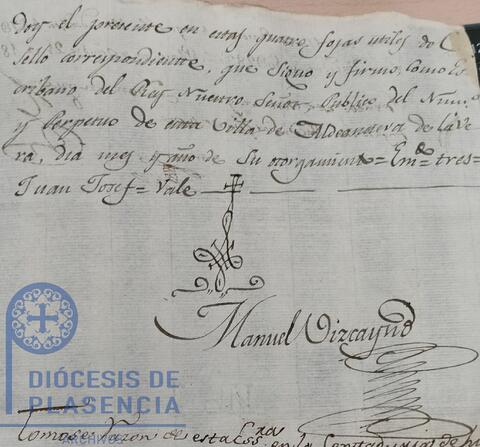 doy el presente en estas quatro fojas utiles de
Sello correspondiente, que Signo y firmo, como Es
cribano del Rey Nuestro Señor, Publico del Num.o
y Perpetuo de esta Villa de Aldeanueva de la Ve
ra, dia mes y año de su otorgamiento = Em.do tres =
Juan Josef = Vale
Manuel Vizcayno
DIÓCESIS DE
PLASENCIA
ARCHIVOS
Tomose razon de esta Ess.ra en la Contaduria de